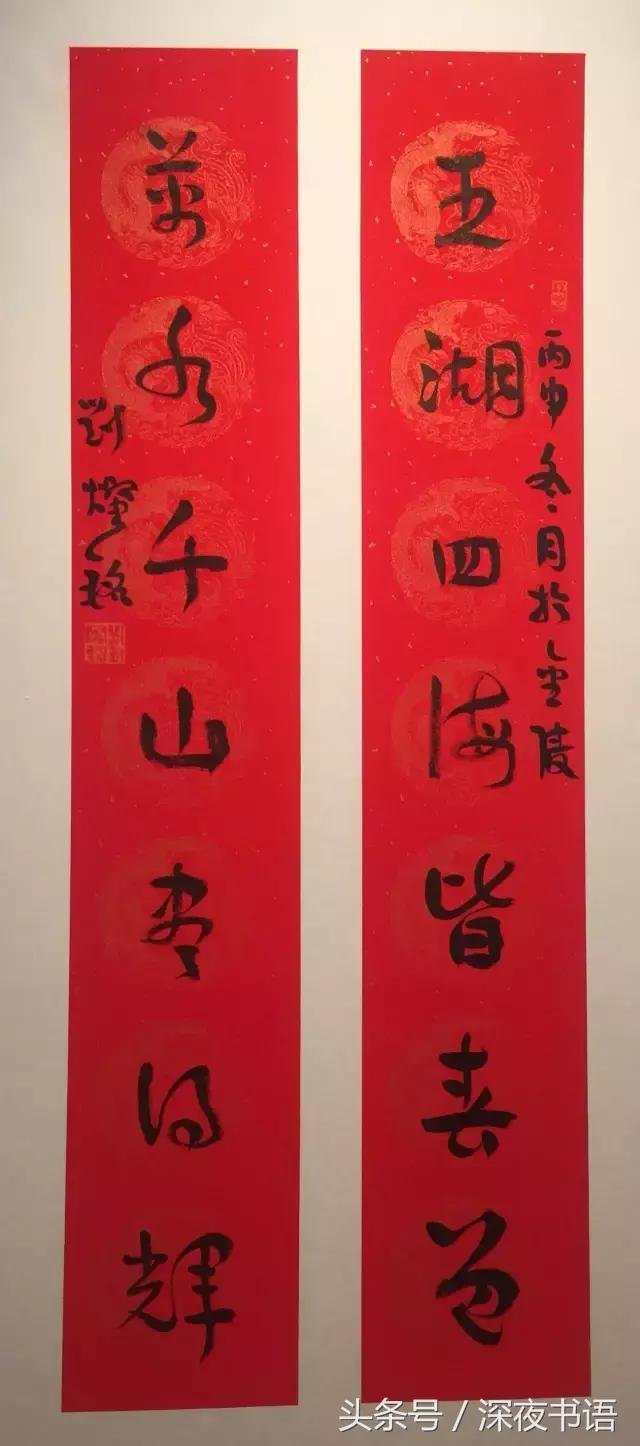 五湖四海皆春色
丙申冬月於金陵
萬水千山盡得輝
劉燦銘
头条号 / 深夜书语